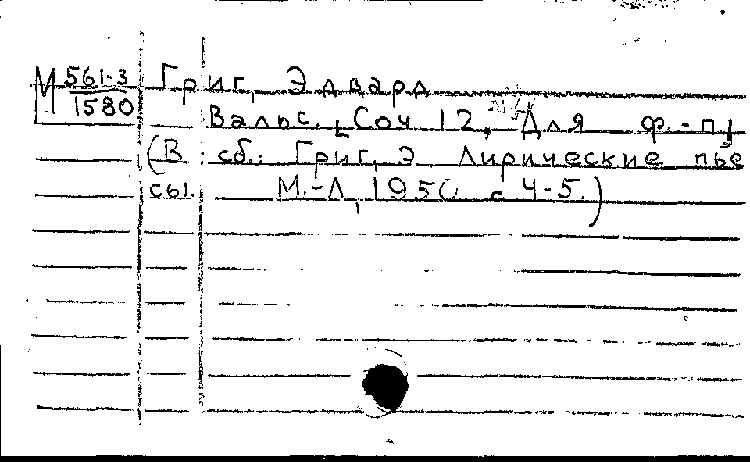 М 561-3 Григ, Эдвард
1580
Вальс. [Соч. 12, №2] Для ф.-п.
(В сб.: Григ, Э. Лирические пье
сы. М.-Л., 1950. с 4-5.)